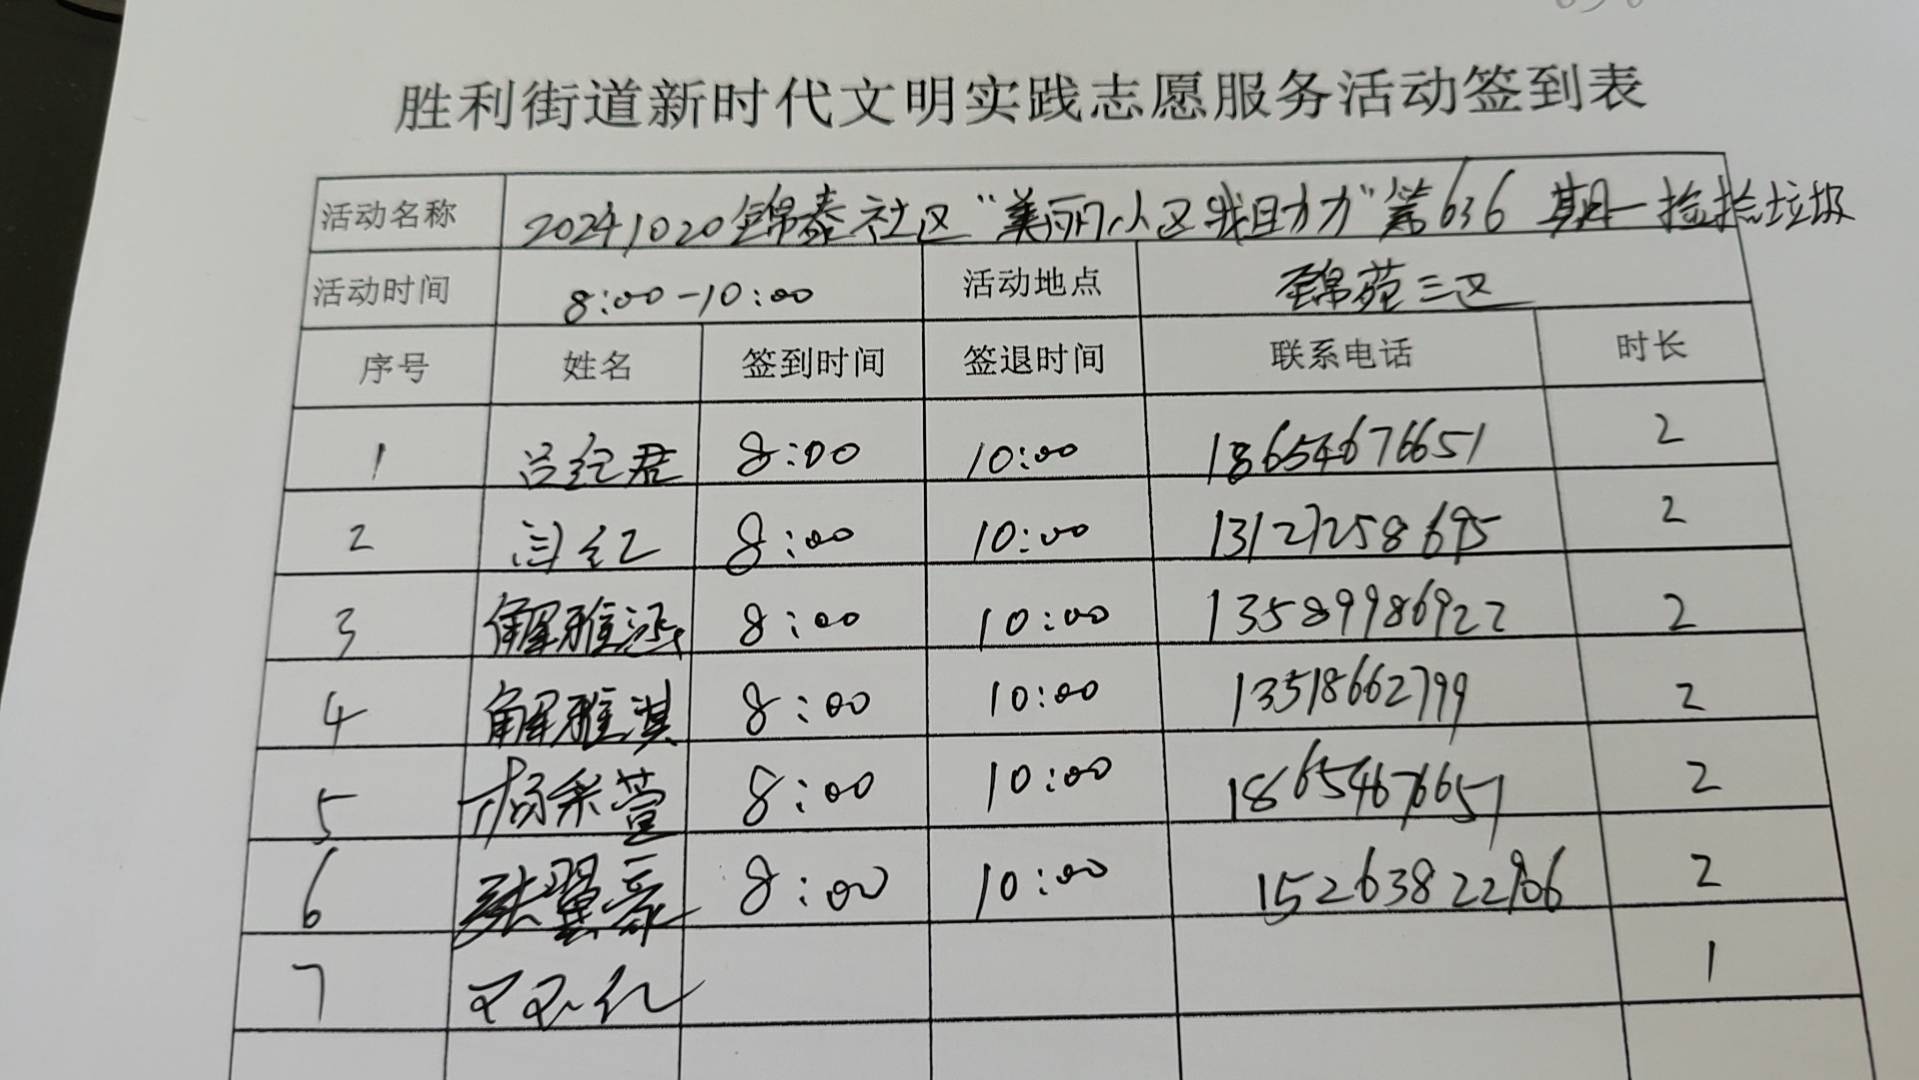 胜利街道新时代文明实践志愿服务活动签到表
活动名称 20241020锦泰社区“美丽小区我助力”第636期—捡拾垃圾
活动时间 8:00-10:00 活动地点 锦苑三区
序号 姓名 签到时间 签退时间 联系电话 时长
1 吕纪君 8:00 10:00 18654676651 2
2 闫红 8:00 10:00 13127258695 2
3 解雅涵 8:00 10:00 13589986922 2
4 解雅淇 8:00 10:00 13518662799 2
5 杨采萱 8:00 10:00 18654676651 2
6 张翼豪 8:00 10:00 2
7 1